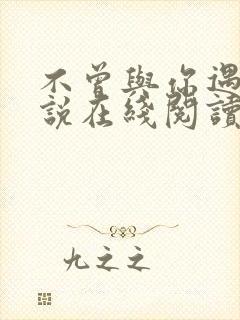 不曾與你遇
說在綫閱讀
九之之